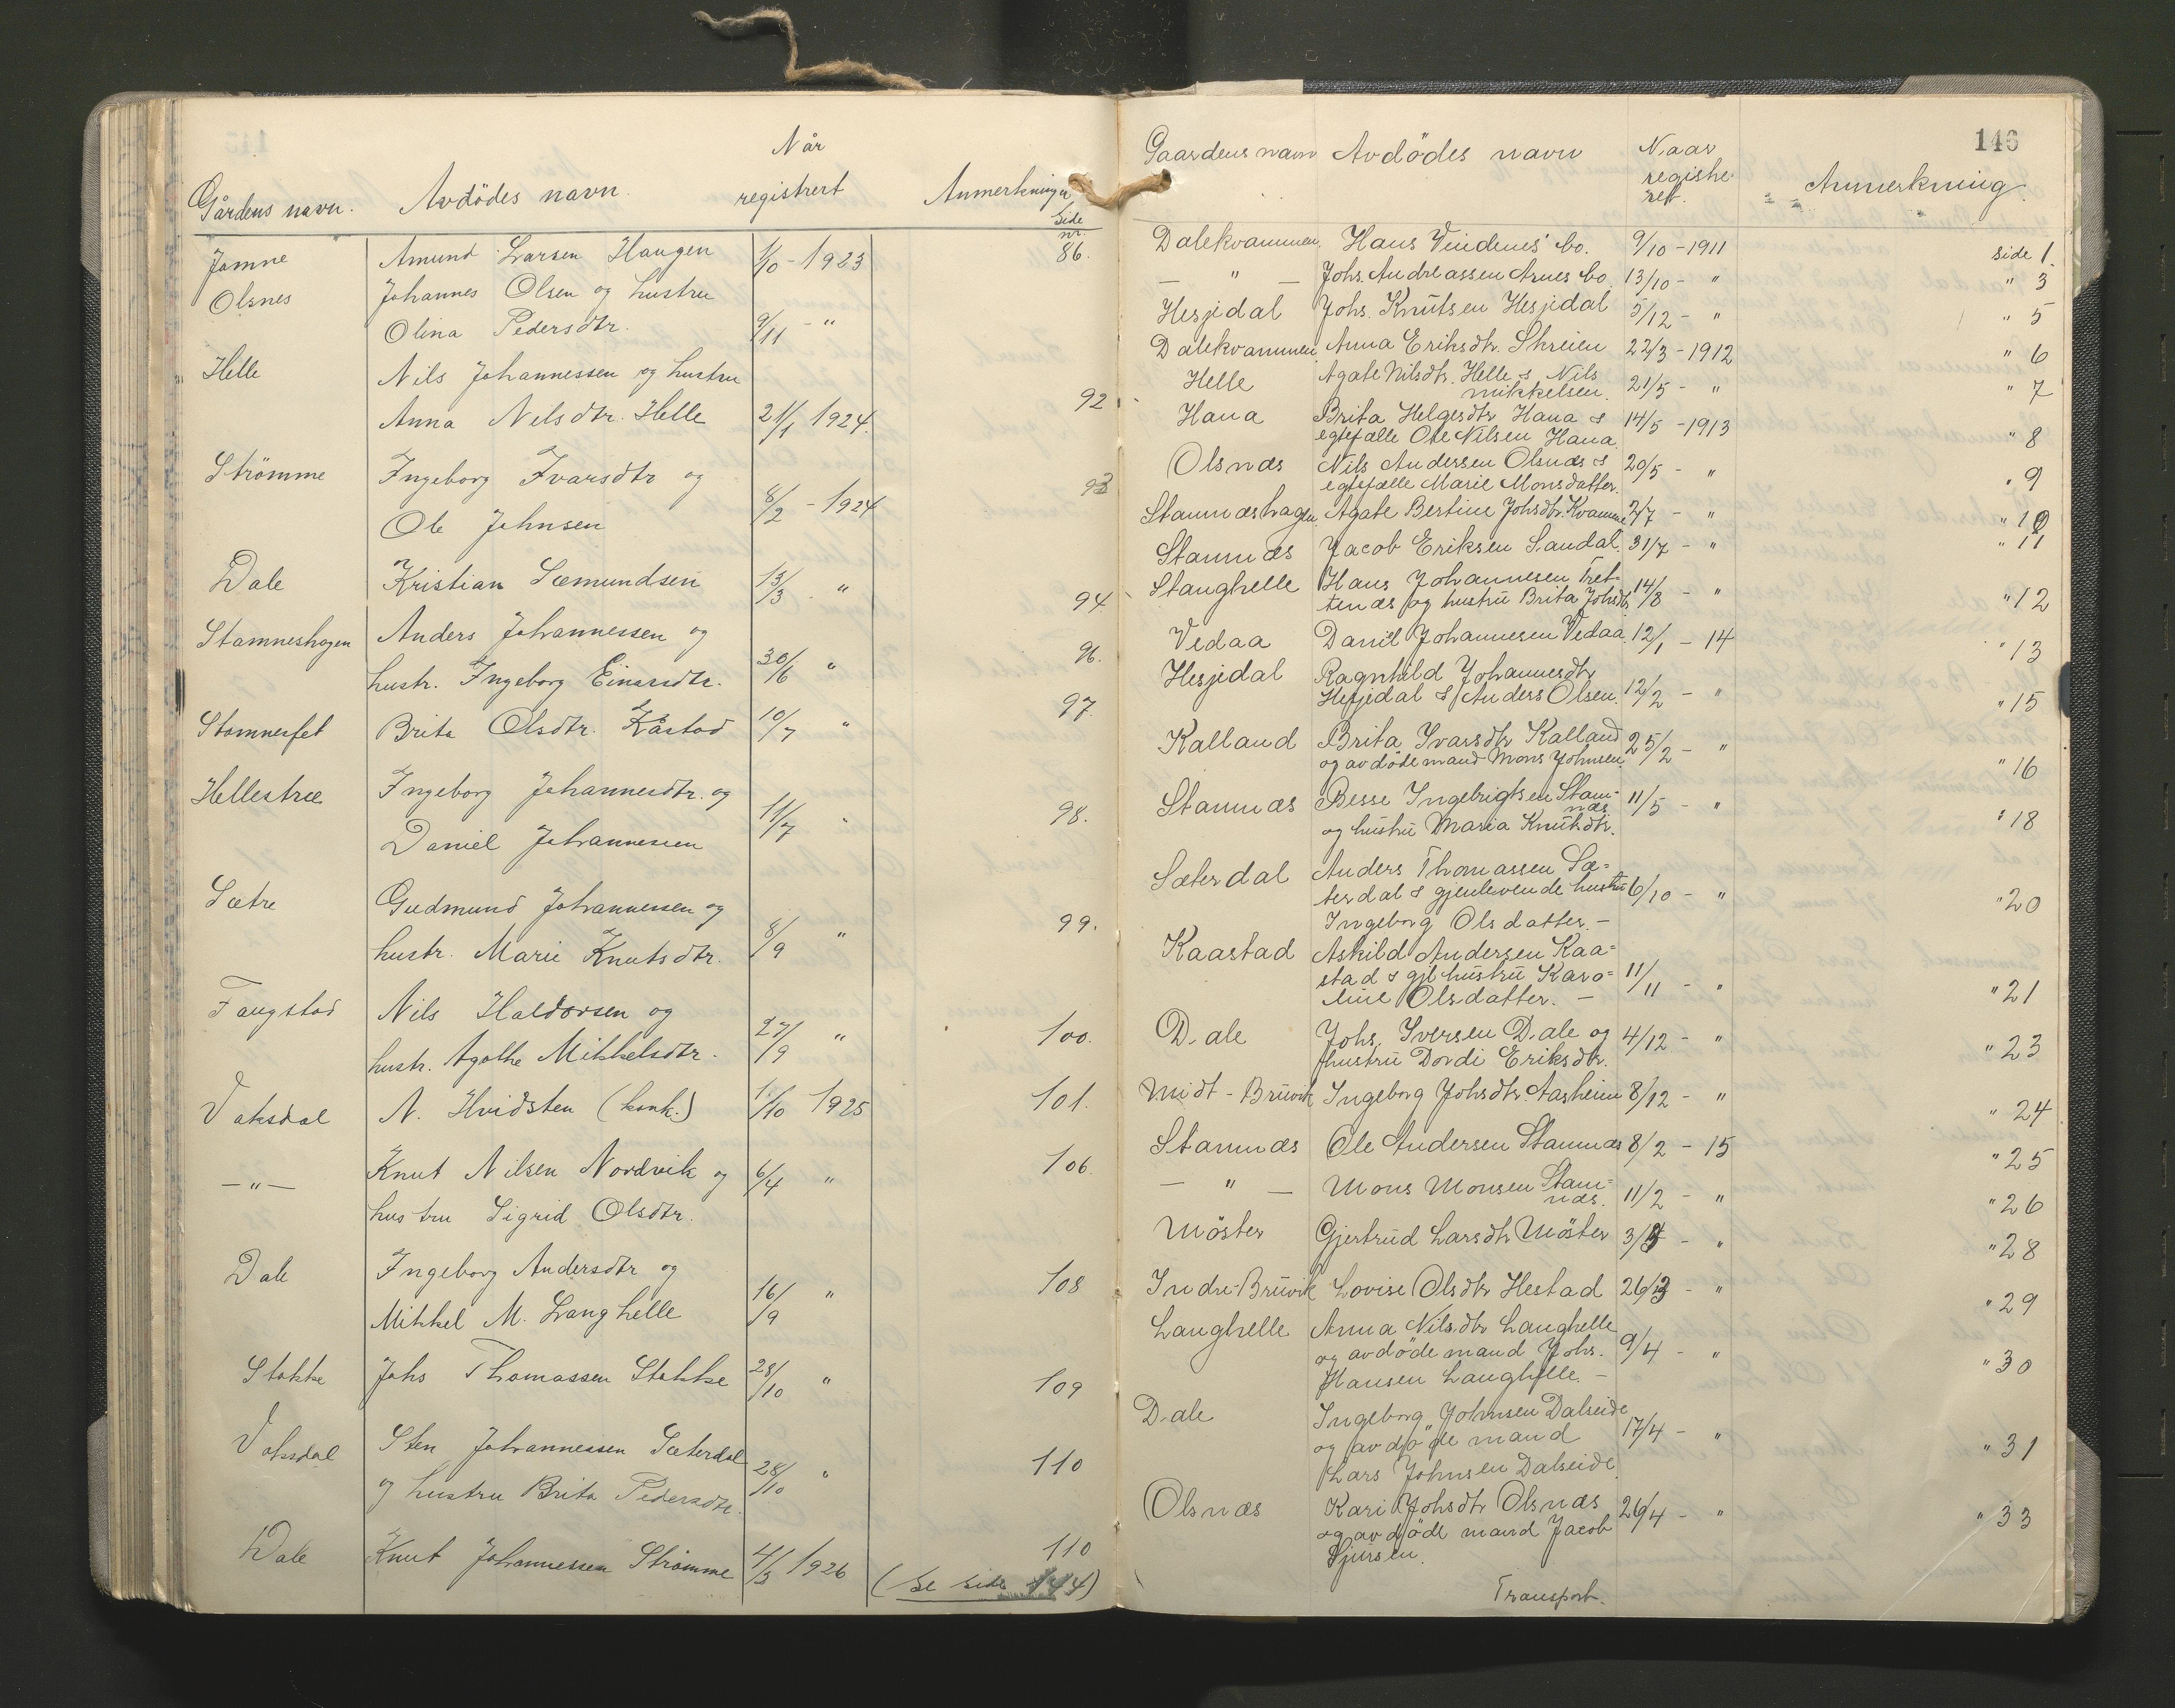 Når
Gårdens navn. Avdödes navn. registrert Anmerkninger
Side nr.
Jamne Amund Larsen Haugen 1/10 - 1923 86.
Olsnes Johannes Olsen og hustru
Olina Pedersdtr. 9/11 - "
Helle Nils Johannessen og hustru
Anna Nilsdtr. Helle 21/1 1924. 92
Strömme Ingeborg Ivarsdtr og 93
Ole Johnsen 8/2 - 1924
Dale Kristian Sæmundsen 13/3 " 94
Stamneshagen Anders Johannessen og 96.
hustr. Ingeborg Einarsdtr. 30/6 "
Stamnesfet Brita Olsdtr. Kåstad 10/7 " 97.
Hellestræ Ingeborg Johannesdtr. og
Daniel Johannessen 11/7 " 98.
Sætre Gudmund Johannessen og 99.
hustr. Marie Knutsdtr. 8/9 "
Fangstad Nils Haldorsen og
hustr. Agathe Mikkelsdtr. 27/9 " 100.
Vaksdal N. Hvidsten (konk.) 1/10 1925 101.
— " — Knut Nilsen Nordvik og 6/4 " 106.
hustru Sigrid Olsdtr.
Dale Ingeborg Andersdtr og 108
Mikkel M. Langhelle 16/9 "
Stokke Johs Thomassen Stokke 28/10 " 109
Vaksdal Sten Johannessen Sæterdal 110
og hustru Brita Pedersdtr. 28/10 "
Dale Knut Johannessen Strömme 4/3 1926 110
(se side 144)
146
Gaardens navn Avdödes navn Naar
registe-
ret. Anmerkning
Dalekvammen. Hans Vindenes bo. 9/10 - 1911 side 1.
— " — Johs. Andreassen Arnes bo. 13/10 - " " 3
Hesjedal Johs. Knutsen Hesjedal 5/12 - " " 5
Dalekvammen Anna Eriksdtr. Skreien 22/3 - 1912 " 6
Helle Agate Nilsdtr. Helle & Nils
Mikkelsen. 21/5 - " " 7
Hana Brita Helgesdtr Hana & 14/5 - 1913
egtefælle Ole Nilsen Hana " 8
Olsnæs Nils Andersen Olsnæs & 20/5 - "
egtefælle Marie Monsdatter. " 9
Stamnæshagen. Agate Bertine Johsdtr. Kvamme 2/7 - " " 10
Stamnæs Jacob Eriksen Sandal. 31/7 - " " 11
Stanghelle Hans Johannesen Tret-
tenæs og hustru Brita Johsdtr. 14/8 - " " 12
Vedaa Daniel Johannesen Vedaa. 12/1 - 14 " 13
Hesjedal Ragnhild Johannesdtr
Hesjedal & Anders Olsen. 12/2 - " " 15
Kalland Brita Ivarsdtr Kalland 25/2 - "
og avdöde mand Mons Johnsen. " 16
Stamnæs Besse Ingebrigtsen Stam-
næs 11/5 - "
og hustru Maria Knutsdtr. " 18
Sæterdal Anders Thomassen Sæ=
terdal & gjenlevende hustru 6/10 - " " 20
Ingeborg Olsdatter. -
Kaastad Askild Andersen Kaa=
stad & gjl hustru Karo= 11/11 - "
line Olsdatter. — " 21
Dale Johs. Iversen Dale og 4/12 - "
hustru Dordi Eriksdtr. " 23
Midt - Bruvik Ingeborg Johsdtr. Aasheim 8/12 - " " 24
Stamnæs Ole Andersen Stamnæs 8/2 - 15 " 25
— " — Mons Monsen Stam=
næs. 11/2 - " " 26
Möster Gjertrud Larsdtr Möster 3/3 - " " 28
Indre-Bruvik Lovise Olsdtr Hestad 26/3 - " " 29
Langhelle Anna Nilsdtr Langhelle
og avdöde mand Johs. 9/4 - " " 30
Hansen Langhelle. -
Dale Ingeborg Johnsen Dalseide
og avdöde mand 17/4 - " " 31
Lars Johnsen Dalseide.
Olsnæs Kari Johsdtr Olsnæs 26/4 - " " 33
og avdöde mand Jacob
Sjursen.
Transport.